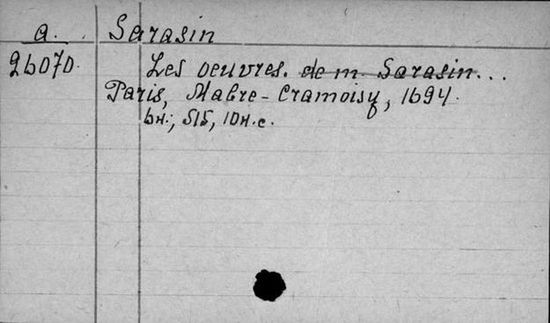 a. Sarasin
26070. Les oeuvres. de m. Sarasin...
Paris, Mabre-Cramoisy, 1694.
6н., 515, 10н.c.